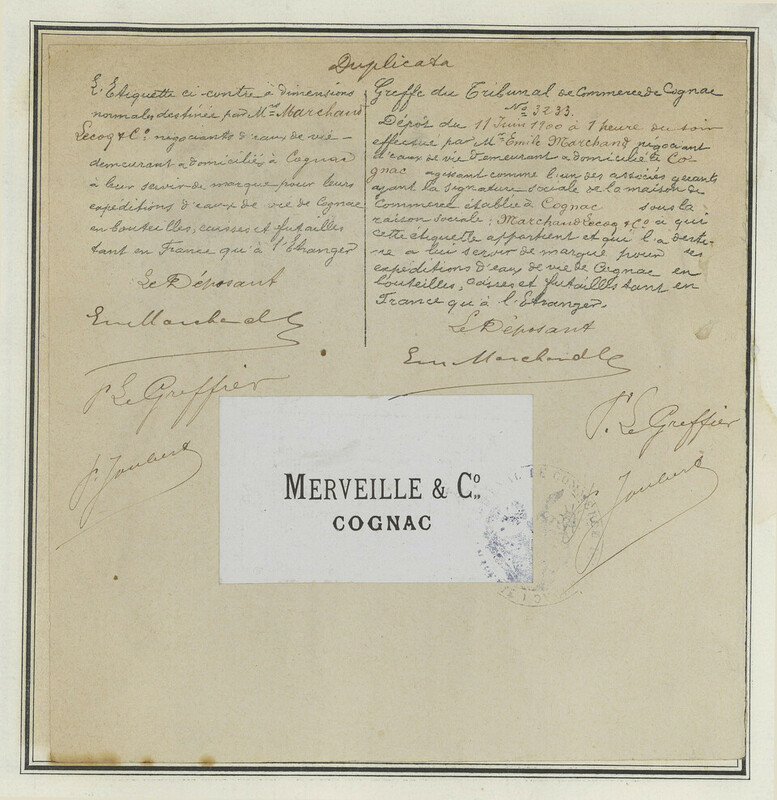 Duplicata
L'Etiquette ci contre à dimensions
normales destinée par Mrs Marchand
Lecoq & Co négociants d'eaux de vie
demeurant & domiciliés à Cognac
à leur servir de marque pour leurs
expéditions d'eaux de vie de Cognac
en bouteilles, caisses et futailles
tant en France qu'à l'Etranger
Le Déposant
Em Marchand
Pr Le Greffier
J. Joubert
Greffe du Tribunal de Commerce de Cognac
No 3233.
Dépôt du 11 Juin 1900 à 1 heure du soir
effectué par Mr Emile Marchand négociant
d'eaux de vie demeurant & domicilié à Co-
gnac agissant comme l'un des associés gérants
ayant la signature sociale de la maison de
Commerce établie à Cognac sous la
raison sociale: Marchand Lecoq & Co à qui
cette étiquette appartient et qui l'a desti-
née à lui servir de marque pour ses
expéditions d'eaux de vie de Cognac en
bouteilles, caisses et futailles tant en
France qu'à l'Etranger.
Le Déposant
Em Marchand
Pr Le Greffier
Joubert
MERVEILLE & Co.
COGNAC